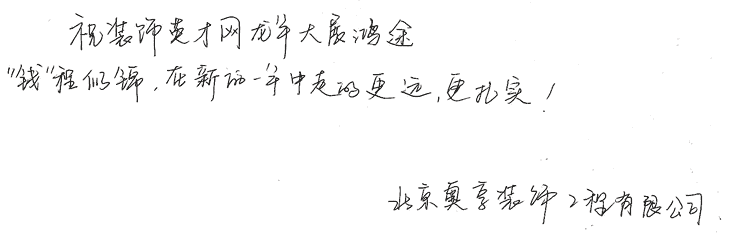 祝装饰英才网龙年大展鸿途
"钱"程似锦,在新的一年中走的更远,更扎实!
北京奥享装饰工程有限公司